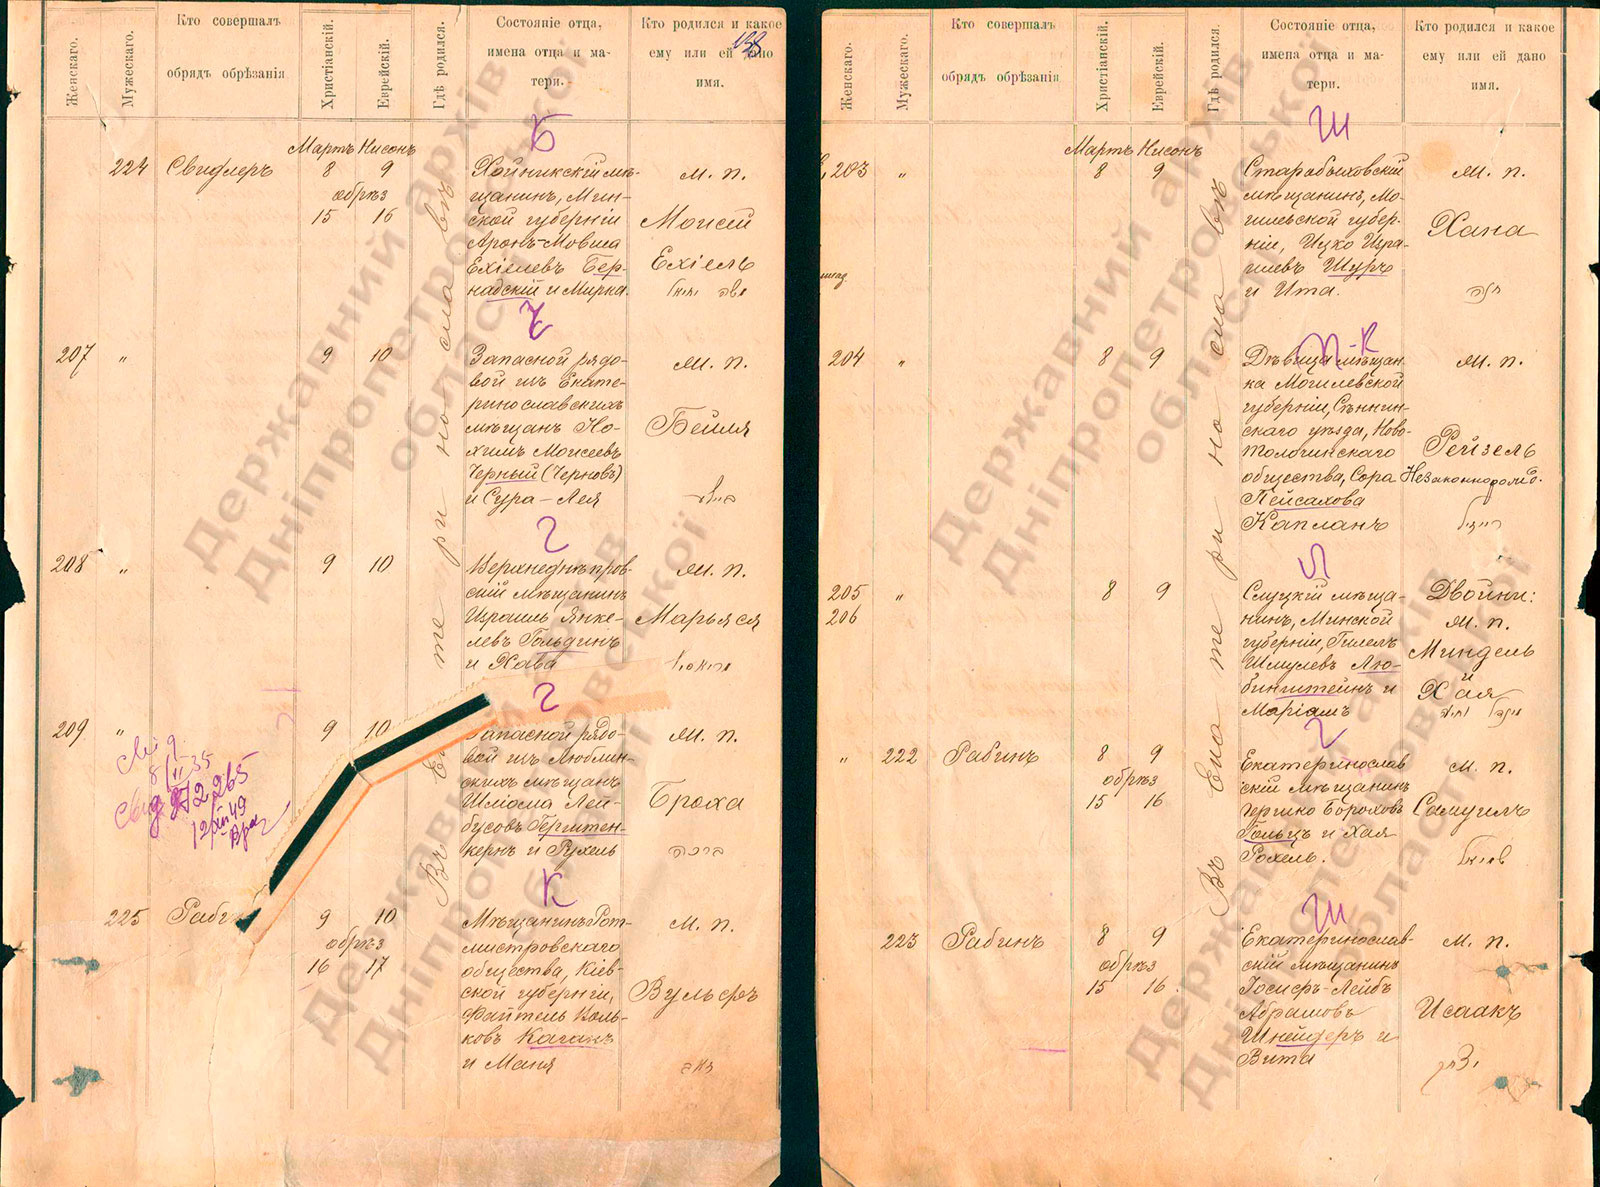 Женскаго.
Мужескаго.
Кто совершалъ
обрядъ обрѣзанія
Христіанскій.
Еврейскій.
Гдѣ родился.
Состояніе отца,
имена отца и ма-
тери.
Кто родился и какое
ему или ей дано
имя.
138
Б
Мартъ Нисонъ
224 Свидлеръ 8 9
обрѣз
15 16
Хойникскій мѣ-
щанинъ, Мин-
ской губерніи
Аронъ-Мовша
Ехіелевъ Бер-
надскій и Мирка.
м. п.
Моисей
Ехіель
Ч
207 " 9 10
Запасной рядо-
вой изъ Екате-
ринославскихъ
мѣщанъ Но-
химъ Моисеевъ
Черный (Черновъ)
и Сура-Лея
м. п.
Бейля
Г
208 " 9 10
Верхнеднѣпров-
скій мѣщанинъ
Израиль Янке-
левъ Гольдинъ
и Хава
м. п.
Марьяся
Г
209 " 9 10
Запасной рядо-
вой изъ Люблин-
скихъ мѣщанъ
Шліома Лей-
бусовъ Герштен-
кернъ и Рухель
м. п.
Броха
К
225 Раби 9 10
обрѣз
16 17
Мѣщанинъ Рот-
мистровскаго
общества, Кіев-
ской губерніи,
Файтель Воль-
ковъ Каганъ
и Маня
м. п.
Вульфъ
Въ Екатеринославѣ
Женскаго.
Мужескаго.
Кто совершалъ
обрядъ обрѣзанія
Христіанскій.
Еврейскій.
Гдѣ родился
Состояніе отца,
имена отца и ма-
тери.
Кто родился и какое
ему или ей дано
имя.
Ш
Мартъ Нисонъ
203 " 8 9
Старобыховскій
мѣщанинъ, Мо-
гилевской губер-
ніи, Ицко Изра-
илевъ Шуръ
и Ита.
м. п.
Хана
П-К
204 " 8 9
Дѣвица мѣщан
ка Могилевской
губерніи, Сѣннин-
скаго уѣзда, Ново-
толочинскаго
общества, Сора
Пейсахова
Капланъ
м. п.
Рейзель
Незаконнорожд.
Л
205 " 8 9
206
Слуцкій мѣща-
нинъ, Минской
губерніи, Гилель
Шмулевъ Лю-
бинштейнъ и
Маріамъ
Двойни:
м. п.
Миндель
и
Хая
Г
" 222 Рабинъ 8 9
обрѣз
15 16
Екатеринослав
скій мѣщанинъ
Гершко Бороховъ
Гольцъ и Хая
Рохель.
м. п.
Самуилъ
Ш
223 Рабинъ 8 9
обрѣз
15 16.
Екатеринослав-
скій мѣщанинъ
Іосифъ-Лейбъ
Абрамовъ
Шнейдеръ и
Вита
м. п.
Исаакъ
Въ Екатеринославѣ
Державний архів
Дніпропетровської
області
Державний архів
Дніпропетровської
області
Державний архів
Дніпропетровської
області
Державний архів
Дніпропетровської
області